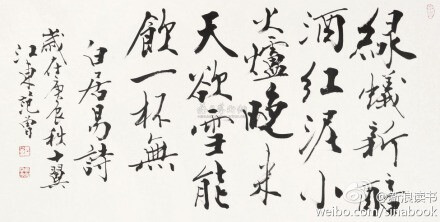 綠蟻新醅
酒紅泥小
火爐晚来
天欲雪能
飲一杯無
白居易詩
歲在庚辰秋十翼
江東范曾
@新浪读书
weibo.com/sinabook